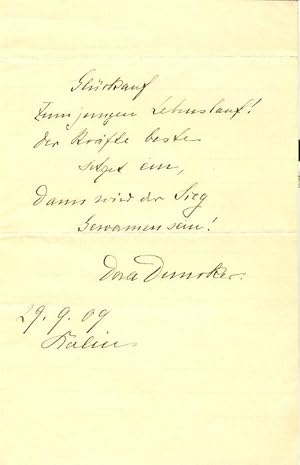 Glückauf
Zum jungen Lebenslauf!
der Kräfte beste
setzet ein,
Dann wird der Sieg
Gewonnen sein!
Dora Duncker.
29. 9. 09
Berlin